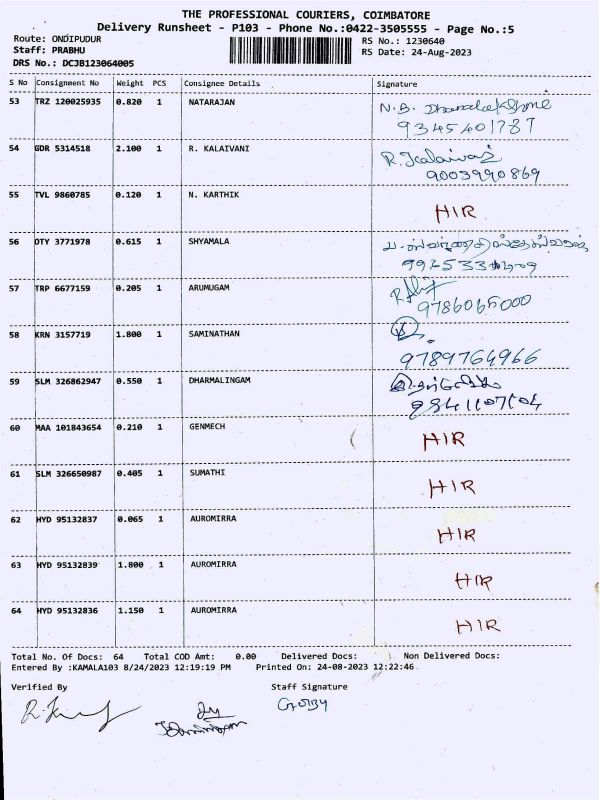 THE PROFESSIONAL COURIERS, COIMBATORE
Delivery Runsheet - P103 - Phone No.:0422-3505555 - Page No.:5
Route: ONDIPUDUR RS No.: 1230640
Staff: PRABHU RS Date: 24-Aug-2023
DRS No.: DCJB123064005
S No Consignment No Weight PCS Consignee Details Signature
53 TRZ 120025935 0.820 1 NATARAJAN N.B.
9345401787
54 GDR 5314518 2.100 1 R. KALAIVANI R. Kalaivani
9003990869
55 TVL 9860785 0.120 1 N. KARTHIK HIR
56 OTY 3771978 0.615 1 SHYAMALA
57 TRP 6677159 0.205 1 ARUMUGAM
9786065000
58 KRN 3157719 1.800 1 SAMINATHAN
9789764966
59 SLM 326862947 0.550 1 DHARMALINGAM
60 MAA 101843654 0.210 1 GENMECH HIR
61 SLM 326650987 0.405 1 SUMATHI HIR
62 HYD 95132837 0.065 1 AUROMIRRA HIR
63 HYD 95132839 1.800 1 AUROMIRRA HIR
64 HYD 95132836 1.150 1 AUROMIRRA HIR
Total No. Of Docs: 64 Total COD Amt: 0.00 Delivered Docs: Non Delivered Docs:
Entered By :KAMALA103 8/24/2023 12:19:19 PM Printed On: 24-08-2023 12:22:46
Verified By Staff Signature